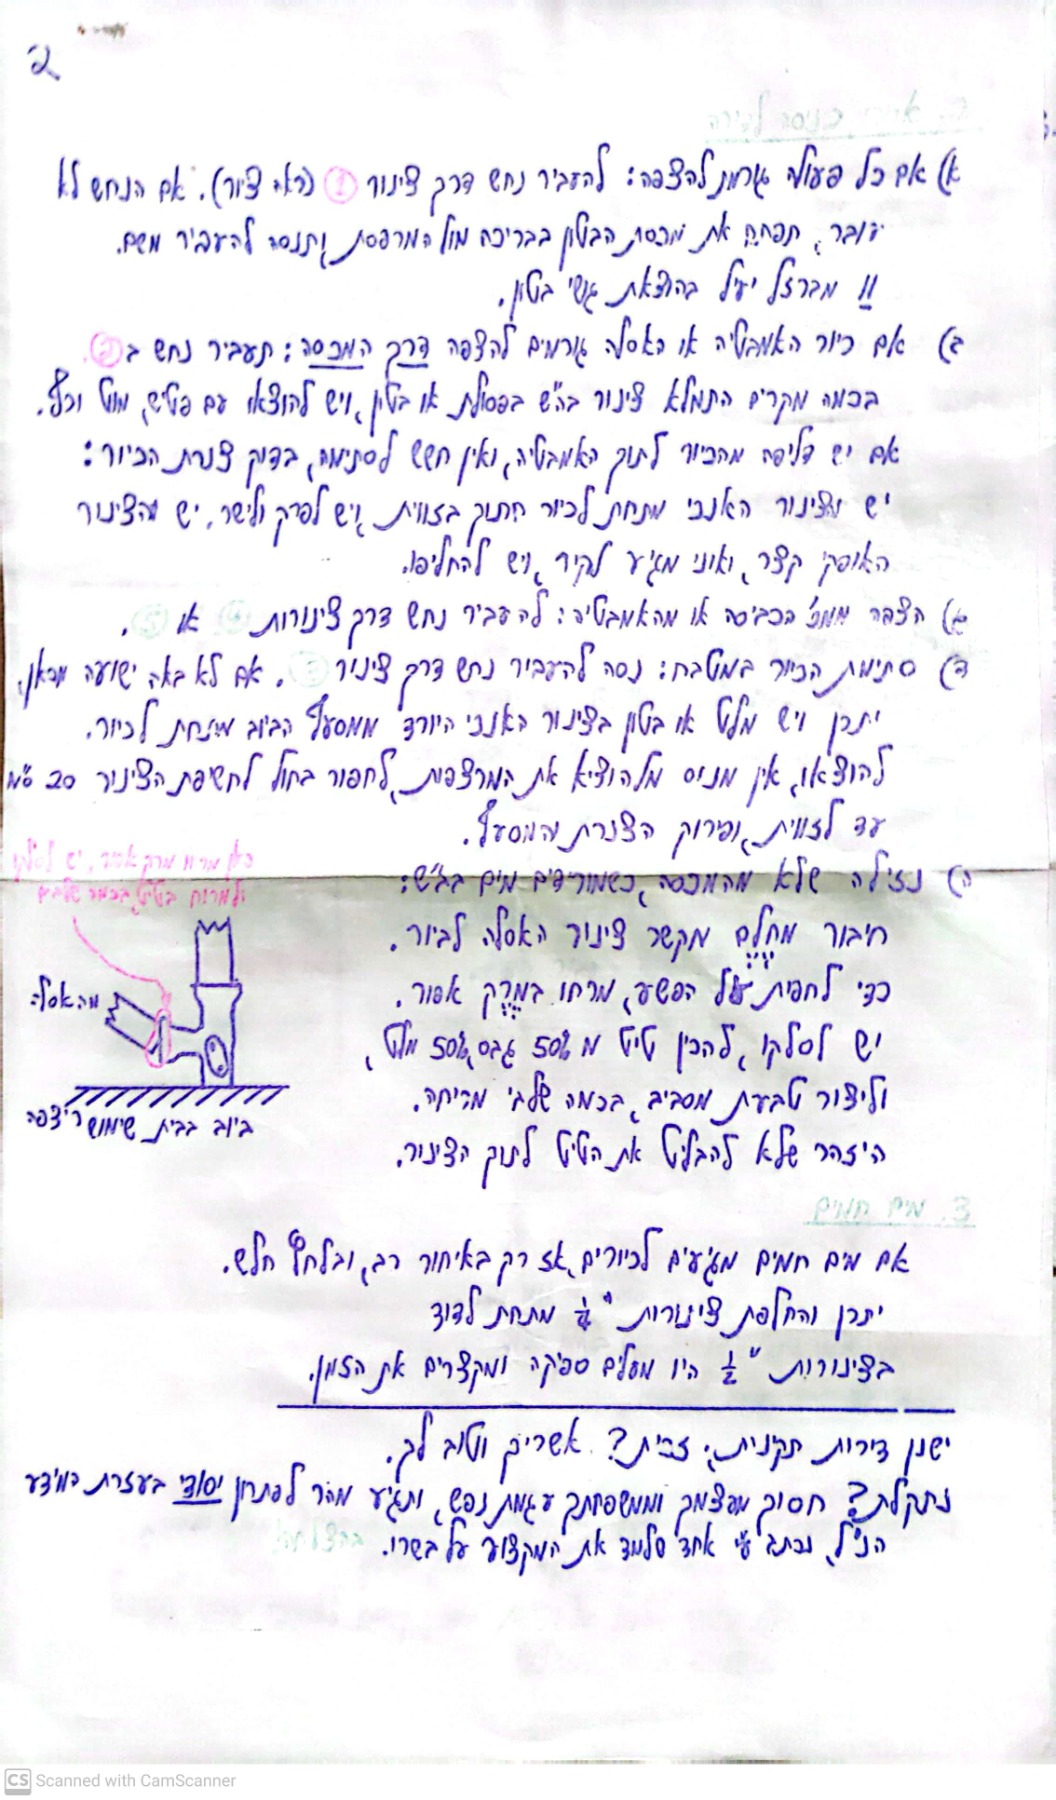 2'
א) אם כל פעולה גורמת להצפה: להעביר נחש דרך צינור 1 (ראה ציור). אם הנחש לא
עובר, תפתח את מכסת הבטון בבריכה מול המרפסת, ותנסה להעביר משם.
!! מברזל יעיל בהוצאת גושי בטון.
ב) אם כיור האמבטיה או האסלה גורמים להצפה דרך המכסה: תעביר נחש ב
בכמה מקרים התמלא צינור בה"ש בפסולת או בטון, ויש להוצאו עם פטיש, מוט וכף.
אם יש דליפה מהכיור לתוך האמבטיה, ואין חשש לסתימה, בדוק צנרת הכיור:
יש והצינור האנכי מתחת לכיור חתוך בזווית, ויש לפרק ולישר. יש והצינור
האופקי קצר, ואינו מגיע לקיר, ויש להחליפו.
ג) הצפה ממכ' הכביסה או מהאמבטיה: להעביר נחש דרך צינורות 4 או 5.
ד) סתימת הכיור במטבח: נסה להעביר נחש דרך צינור 3. אם לא באה ישועה מכאן,
יתכן ויש מלט או בטון בצינור האנכי היורד ממסעף הביוב מתחת לכיור.
להוצאו, אין מנוס מלהוציא את המרצפות, לחפור בחול לחשיפת הצינור 20 ס"מ
עד לזווית, ופירוק הצנרת והמסעף.
ה) נזילה שלא מהמכסה, כשמורידים מים בבי"ש:
חיבור מחלם מקשר צינור האסלה לביוב.
כדי לחפות על הפשע, מרחו במרק אפור.
יש לסלקו, להכין טיט מ 50% גבס, 50% מלט,
וליצור טבעת מסביב, בכמה שלבי מריחה.
היזהר שלא להבליט את הטיט לתוך הצינור.
כאן מרחו מרק אפור, יש לסלקו
ולמרוח בטיט, בכמה שלבים
מהאסלה
ריצפה
ביוב בבית שימוש
3. מים חמים
אם מים חמים מגיעים לכיורים, אז רק באיחור רב, ובלחץ חלש.
יתכן והחלפת צינורות "¼ מתחת לדוד
בצינורות "½ היו מעלים ספיקה ומקצרים את הזמן.
ישנן דירות תקינות, זכית? אשריך וטוב לך.
נתקלת? חסוך מעצמך וממשפחתך עגמת נפש, ותגיע מהר לפתרון יסודי בעזרת המידע
הנ"ל, נכתב ע"י אחד שלמד את המקצוע על בשרו. בהצלחה!
CS Scanned with CamScanner